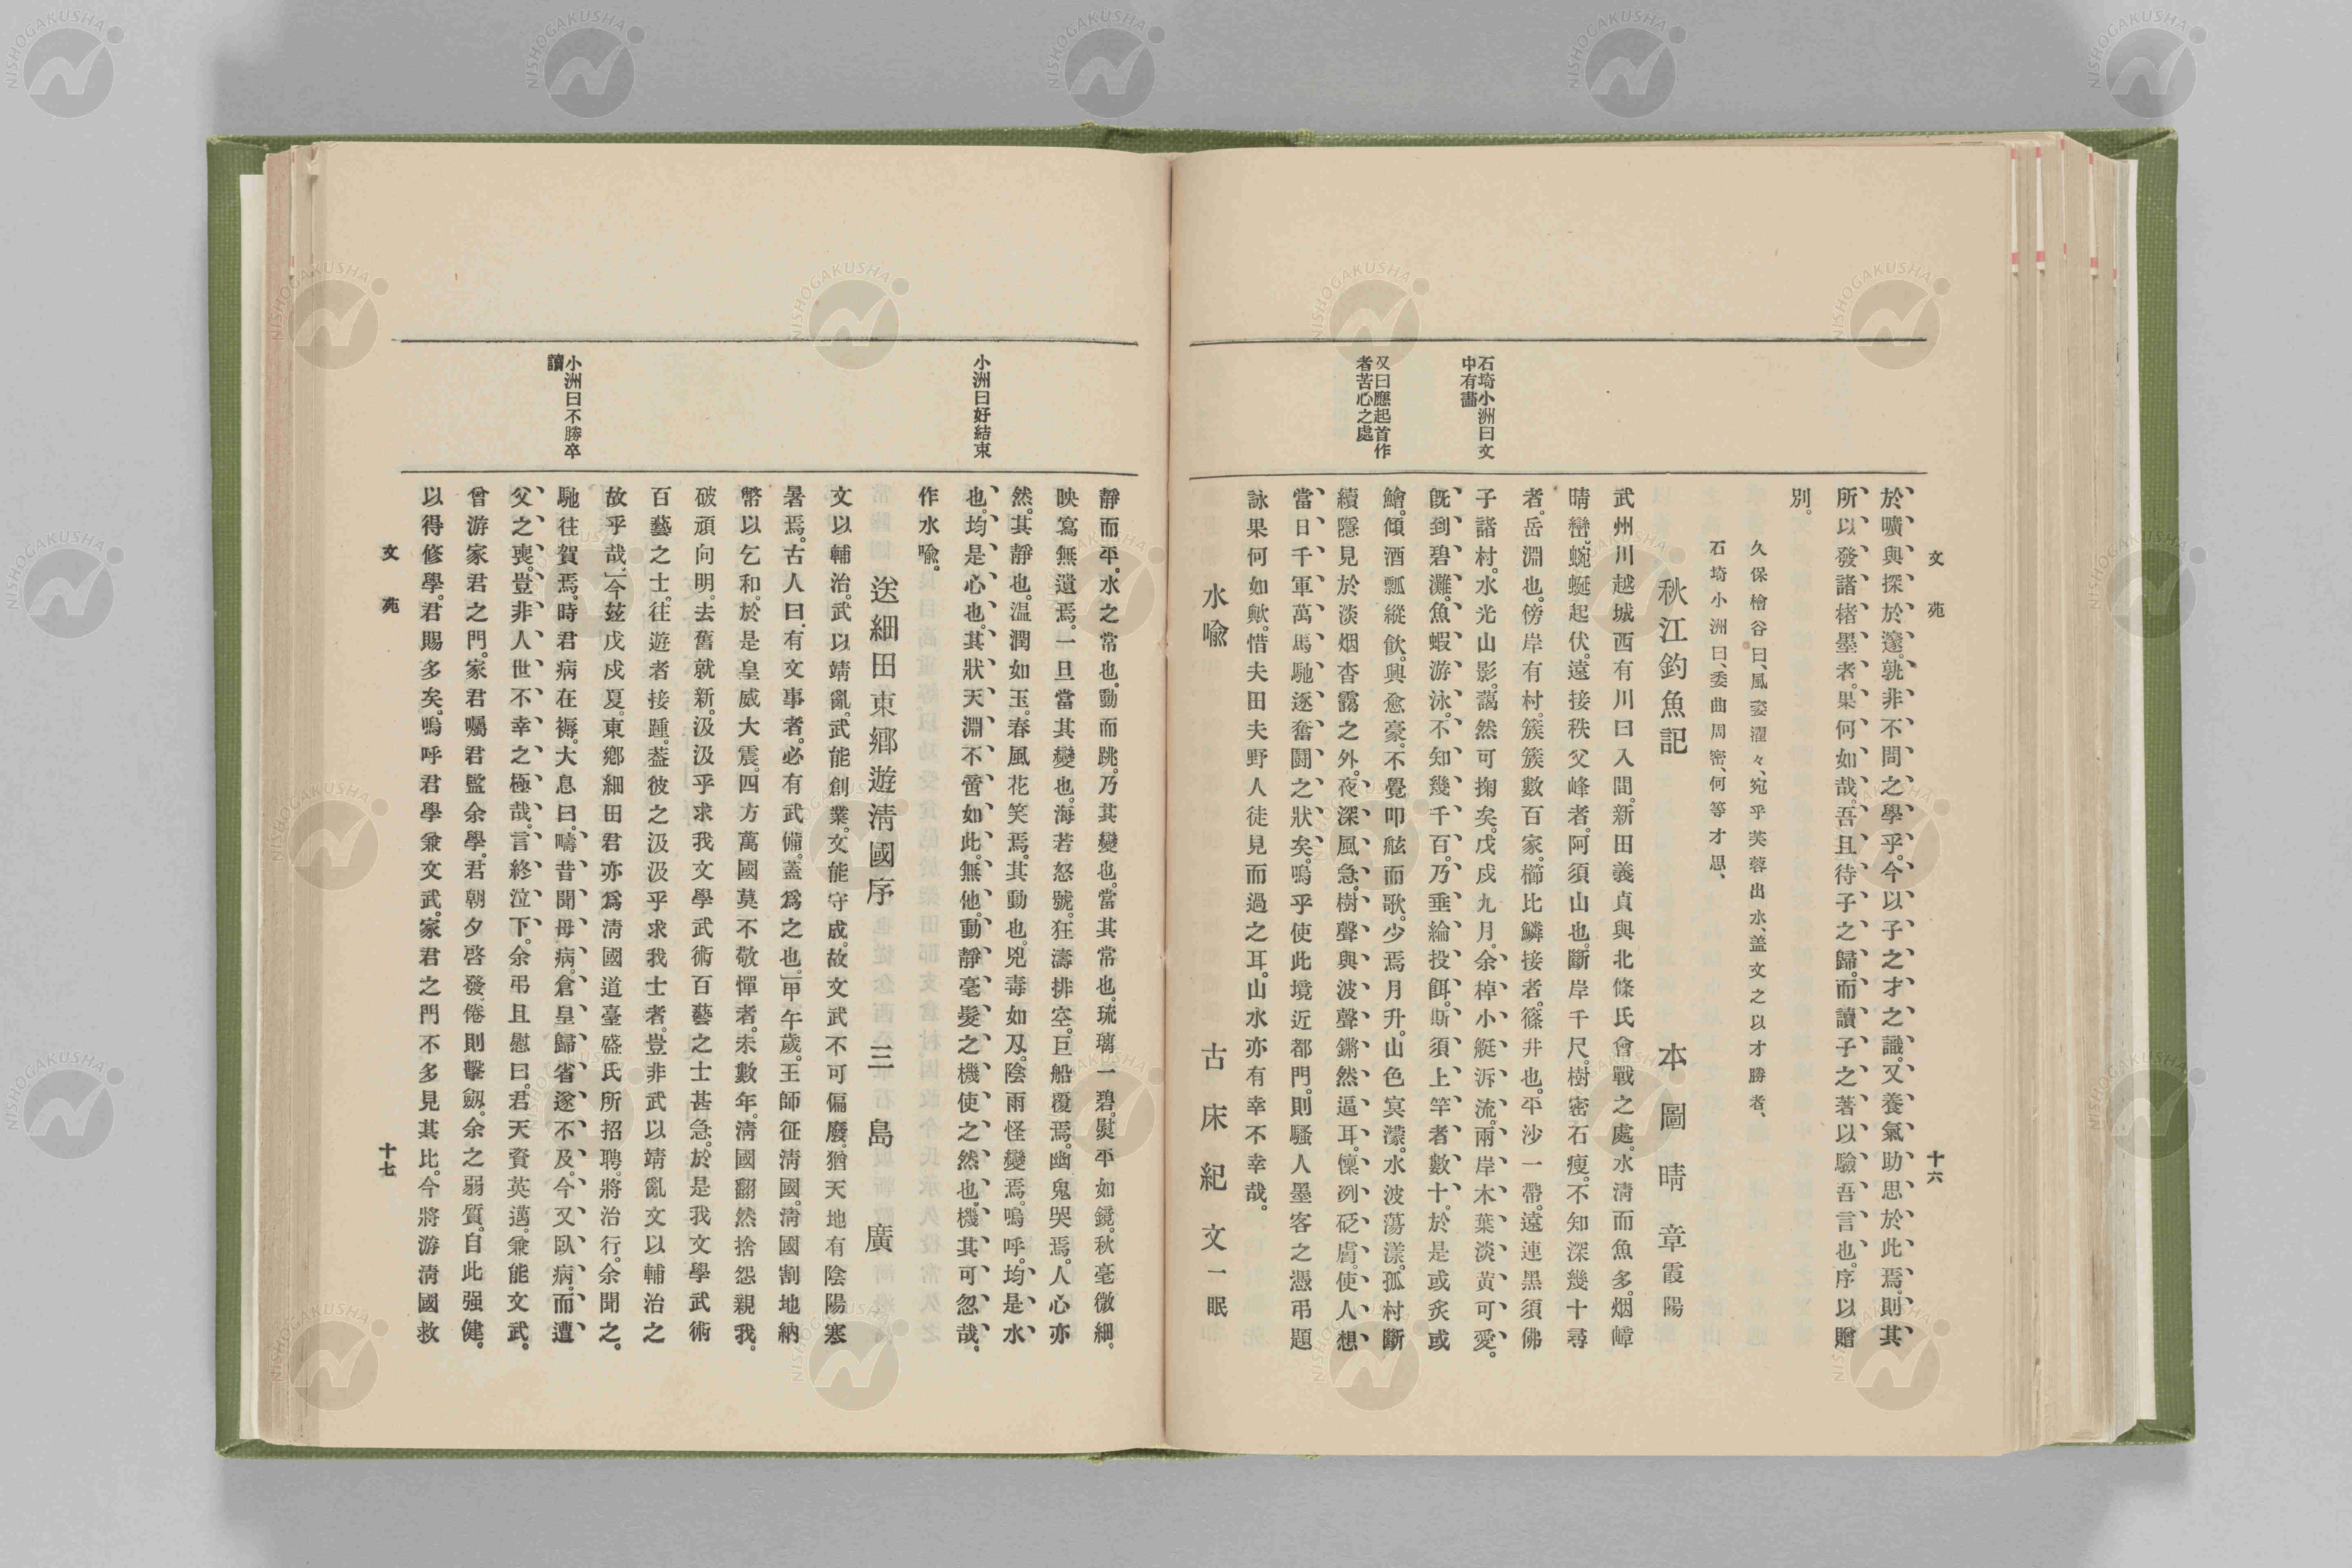 文苑
十六
於曠與探於邃。孰非不問之學乎。今以子之才之識。又養氣助思於此焉。則其
所以發諸楮墨者。果何如哉。吾且待子之歸。而讀子之著以驗吾言也。序以贈
別。
久保檜谷曰、風姿濯々、宛乎芙蓉出水、盖文之以才勝者、
石埼小洲曰、委曲周密、何等才思、
秋江釣魚記
本圖晴章霞陽
石埼小洲曰文
中有畵
又曰應起首作
者苦心之處
武州川越城西有川曰入間。新田義貞與北條氏會戰之處。水淸而魚多。烟嶂
晴巒。蜿蜒起伏。遠接秩父峰者。阿須山也。斷岸千尺。樹密石瘦。不知深幾十尋
者。岳淵也。傍岸有村。簇簇數百家。櫛比鱗接者。篠井也。平沙一帶。遠連黑須佛
子諸村。水光山影。藹然可掬矣。戊戌九月。余棹小艇泝流。兩岸木葉淡黃可愛。
旣到碧灘。魚蝦游泳。不知幾千百。乃垂綸投餌。斯須上竿者數十。於是或炙或
鱠。傾酒瓢縱飮。興愈豪。不覺叩舷而歌。少焉月升。山色冥濛。水波蕩漾。孤村斷
續隱見於淡烟杳靄之外。夜深風急。樹聲與波聲鏘然逼耳。懍冽砭膚。使人想
當日千軍萬馬馳逐奮鬪之狀矣。嗚乎使此境近都門。則騷人墨客之憑弔題
詠果何如歟。惜夫田夫野人徒見而過之耳。山水亦有幸不幸哉。
水喩
古床紀文一眠
小洲曰好結束
小洲曰不勝卒
讀
靜而平。水之常也。動而跳。乃其變也。當其常也。琉璃一碧。熨平如鏡。秋毫微細。
映寫無遺焉。一旦當其變也。海若怒號。狂濤排空。巨船覆焉。幽鬼哭焉。人心亦
然。其靜也。温潤如玉。春風花笑焉。其動也。兇毒如刄。陰雨怪變焉。嗚呼。均是水
也。均是心也。其狀天淵不啻如此。無他。動靜毫髮之機使之然也。機其可忽哉。
作水喩。
送細田東鄕遊淸國序
三島廣
文以輔治。武以靖亂。武能創業。文能守成。故文武不可偏廢。猶天地有陰陽寒
暑焉。古人曰。有文事者。必有武備。蓋爲之也。」甲午歲。王師征淸國。淸國割地納
幣以乞和。於是皇威大震。四方萬國莫不敬憚者。未數年。淸國翻然捨怨親我。
破頑向明。去舊就新。汲汲乎求我文學武術百藝之士甚急。於是我文學武術
百藝之士。往遊者接踵。葢彼之汲汲乎求我士者。豈非武以靖亂文以輔治之
故乎哉。」今玆戊戌夏。東鄕細田君亦爲淸國道臺盛氏所招聘。將治行。余聞之。
馳往賀焉。時君病在褥。大息曰。疇昔聞母病。倉皇歸省遂不及。今又臥病。而遭
父之喪。豈非人世不幸之極哉。言終泣下。余弔且慰曰。君天資英邁。兼能文武。
曾游家君之門。家君囑君監余學。君朝夕啓發。倦則擊劔。余之弱質。自此强健。
以得修學。君賜多矣。嗚呼君學兼文武。家君之門不多見其比。今將游淸國救
文苑
十七